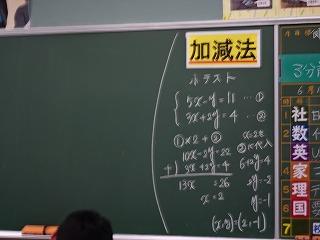 加減法
小テスト
5x-y=11 …①
3x+2y=4 …②
①×2+②
10x-2y=22
+) 3x+2y=4
13x =26
x=2
x=2を
②に代入
6+2y=4
2y=-2
y=-1
(x,y)=(2,-1)
3分前
6月
1 社
2 数
3 英
4 家
5 理
6 国
7